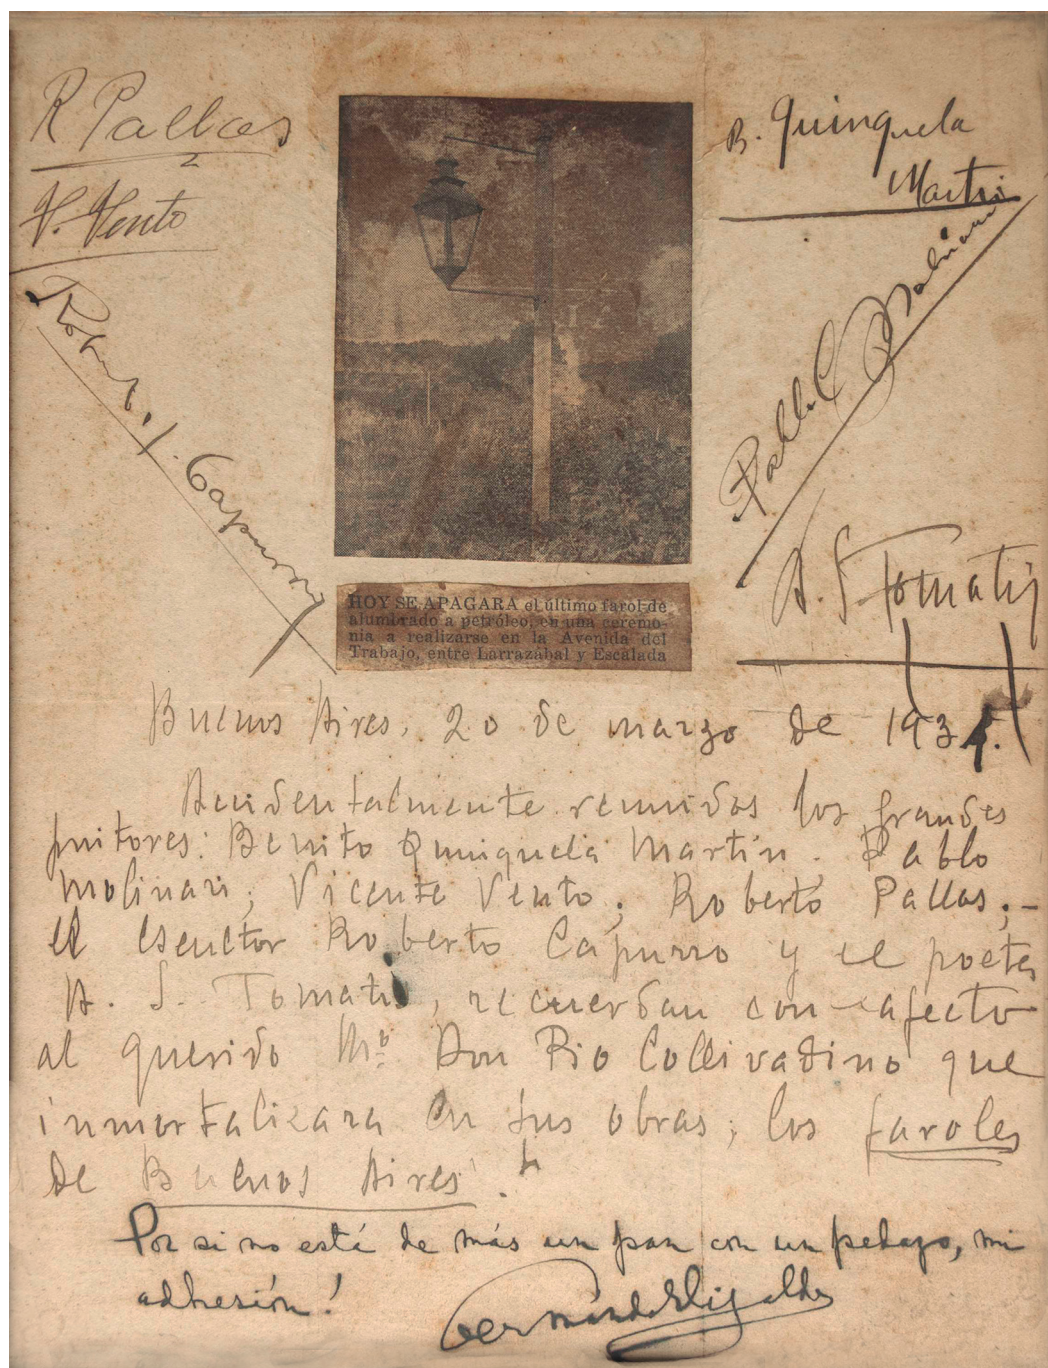 R Pallas
V. Vento
Roberto J. Capurro
B. Quinquela
Martin
Pablo C Molinari
A. S. Tomatis
HOY SE APAGARA el último farol de
alumbrado a petróleo, en una ceremo-
nia a realizarse en la Avenida del
Trabajo, entre Larrazábal y Escalada
Buenos Aires, 20 de marzo de 193
Accidentalmente reunidos los grandes
pintores: Benito Quinquela Martin, Pablo
Molinari; Vicente Vento; Roberto Pallas;-
el escultor Roberto Capurro y el poeta
A. S. Tomatis, recuerdan con afecto
al querido Mº. Don Pio Collivadino que
inmortalizara en sus obras, los faroles
de Buenos Aires.
Por si no está de más un pan con un pedazo, mi
adhesión!